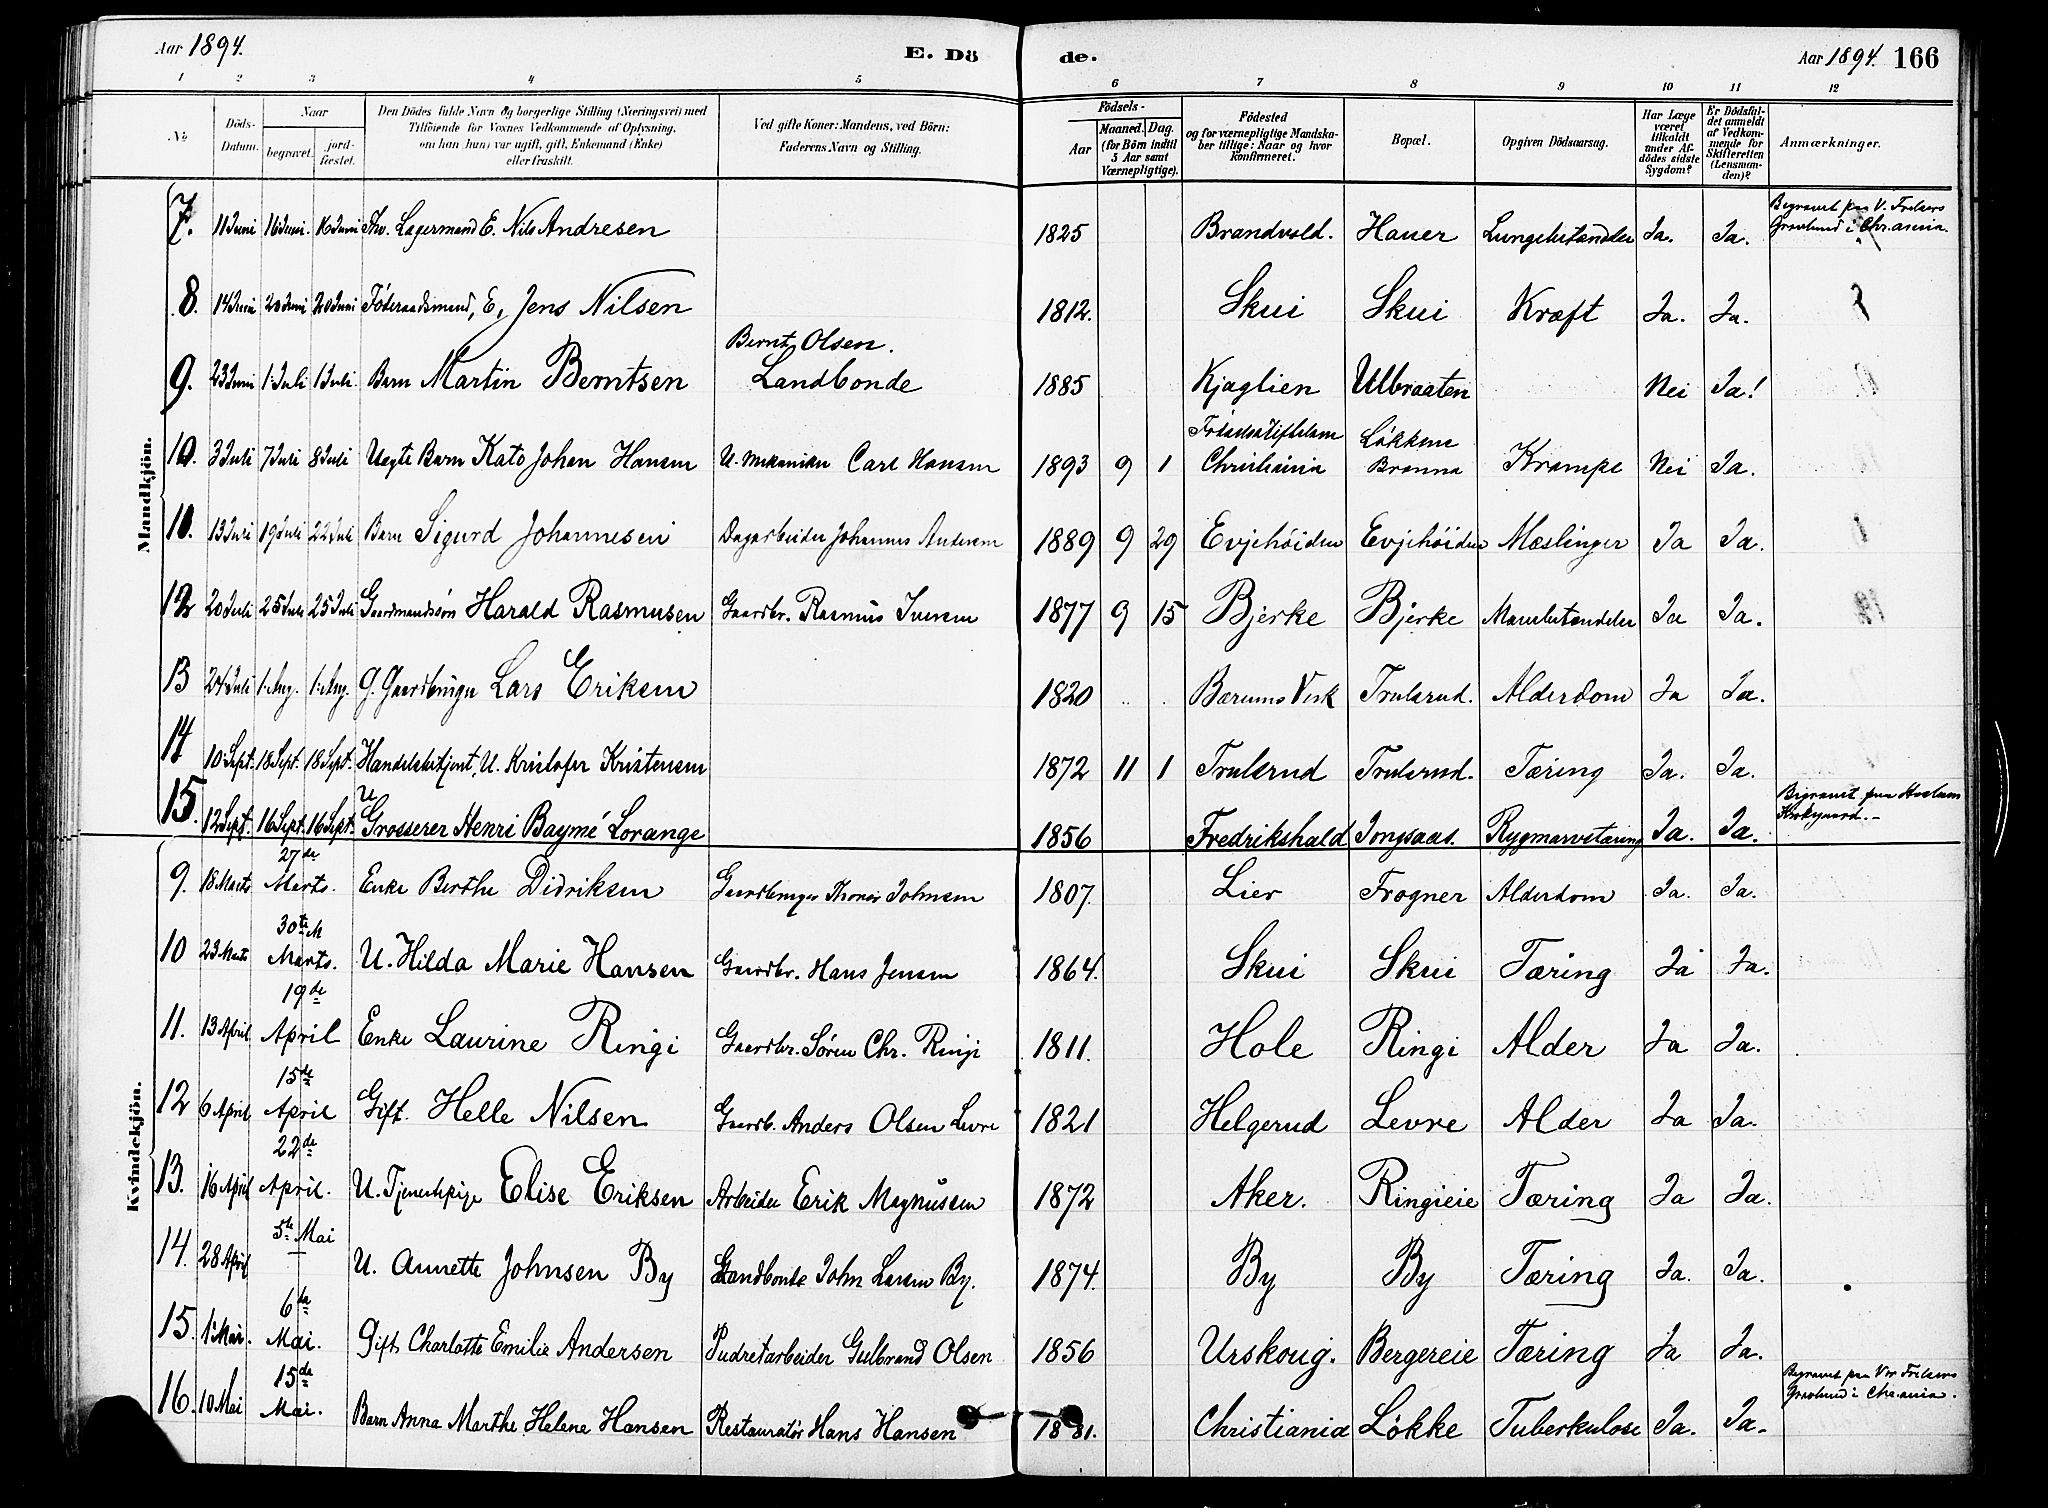 Aar 1894. E. Dö de. Aar 1894. 166
1 2 3 4 5 6 7 8 9 10 11 12
№ Döds-Datum. Naar begravet. jord-fæstet. Den Dödes fulde Navn og borgerlige Stilling (Næringsvei) med Tilföiende for Voxnes Vedkommende af Oplysning, om han (hun) var ugift, gift, Enkemand (Enke) eller fraskilt. Ved gifte Koner: Mandens, ved Börn: Faderens Navn og Stilling. Födsels- Aar Maaned. Dag. (for Börn indtil 5 Aar samt Værnepligtige). Födested og for værnepligtige Mandskaber tillige: Naar og hvor konfirmeret. Bopæl. Opgiven Dödsaarsag. Har Læge været tilkaldt under Afdödes sidste Sygdom? Er Dödsfaldet anmeldt af Vedkommende for Skifteretten (Lensmanden)? Anmærkninger.
Mandkjön.
7. 11 Juni 16 Juni. 16 Juni Fhv. Lagermand E. Nils Andresen 1825 Brandvold. Hauer Lungebetændelse Ja. Ja. Begravet paa V. Frelsers Gravlund i Chr.ania.
8. 14 Juni 20 Juni 20 Juni Föderaadsmand, E, Jens Nilsen 1812. Skui Skui Kræft Ja. Ja.
9. 23 Juni 1. Juli 1 Juli. Barn Martin Berntsen Bernt Olsen. Landbonde 1885 Kjaglien Ulbraaten Nei Ja!
10. 3 Juli 7 Juli 8 Juli Uegte Barn Kato Johan Hansen U. Mekaniker Carl Hansen 1893 9 1 Fødselsstiftelsen Christiania Løkkene Branna Krampe Nei Ja.
11. 13 Juli 19 Juli 22 Juli Barn Sigurd Johannesen Dagarbeider Johannes Andersen 1889 9 29 Evjehöiden Evjehöiden Mæslinger Ja Ja.
12 20 Juli 25 Juli 25 Juli Gaardmandssön Harald Rasmusen Gaardbr. Rasmus Iversen 1877 9 15 Bjerke Bjerke Mavebetændelse Ja Ja.
13 24 Juli 1. Aug. 1. Aug. G. Gaardbruger Lars Eriksen 1820 Bærums Verk Trulsrud. Alderdom Ja Ja.
14 10 Sept. 18 Sept. 18 Sept. Handelsbetjent, U. Kristofer Kristensen 1872 11 1 Trulsrud Trulsrud. Tæring Ja. Ja.
15. 12 Sept. 16 Sept. 16 Sept. U Grosserer Henri Baymé Lorange 1856 Fredrikshald Jongsaas. Rygmarvstæring Ja. Ja. Begravet paa Haslum Kirkegaard.
Kvindekjön.
9. 18 Marts 27de Marts. Enke Berthe Didriksen Gaardbruger Thomas Johnsen 1807. Lier Frogner Alderdom Ja. Ja.
10 23 Marts 30te M Marts. U. Hilda Marie Hansen Gaardbr. Hans Jensen 1864. Skui Skui Tæring Ja Ja.
11. 13 April 19de April Enke Laurine Ringi Gaardbr. Sören Chr. Ringi 1811. Hole Ringi Alder Ja Ja.
12 6 April 15de April Gift. Helle Nilsen Gaardb. Anders Olsen Levre 1821 Helgerud Levre Alder Ja Ja.
13. 16 April 22de April. U. Tjenestepige Elise Eriksen Arbeider Erik Magnussen 1872 Aker. Ringieie Tæring Ja Ja.
14. 28 April 5te Mai U. Annette Johnsen By Landbonde John Larsen By. 1874. By By Tæring Ja. Ja.
15. 1. Mai. 6de Mai. Gift. Charlotte Emilie Andersen Pudretarbeider Gulbrand Olsen 1856 Urskoug. Bergereie Tæring Ja Ja.
16. 10 Mai 15de Mai. Barn Anna Marthe Helene Hansen Restauratör Hans Hansen 1881. Christiania Løkke Tuberkulose Ja. Ja. Begravet paa Vor Frelsers Gravlund i Chr.ania.